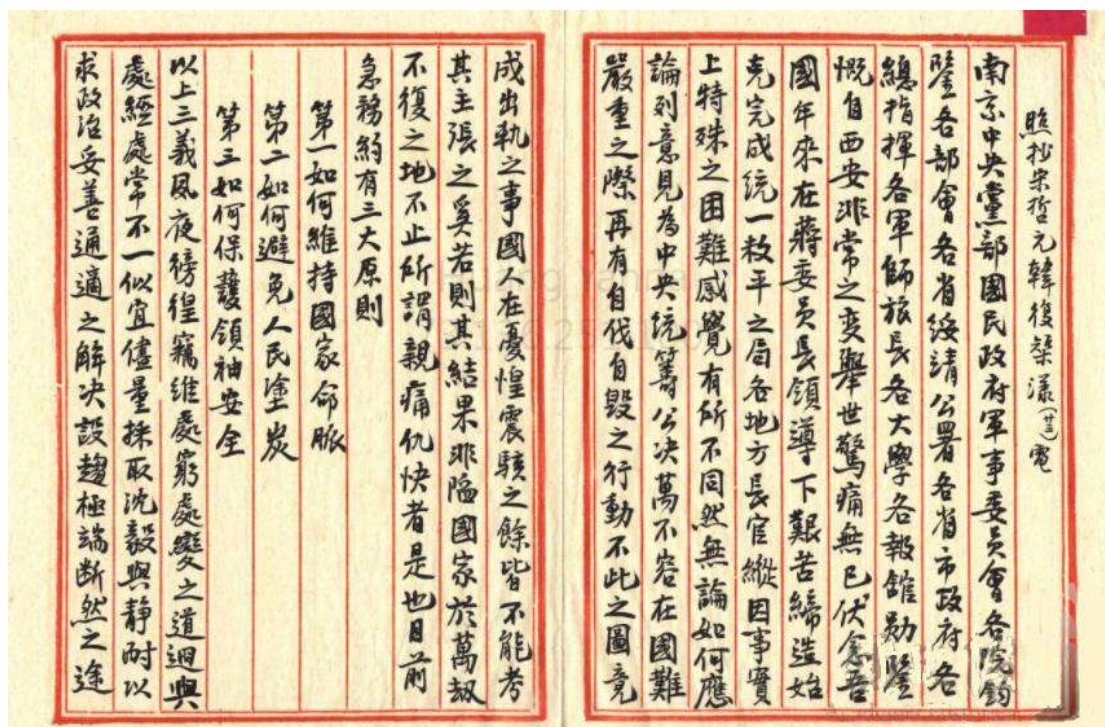 照抄宋哲元韓復榘漾(廿三)電
南京中央黨部國民政府軍事委員會各院鈞
鑒各部會各省綏靖公署各省市政府各
總指揮各軍師旅長各大學各報館勛鑒
慨自西安非常之变舉世驚痛無已伏念吾
國年來在蔣委員長領導下艱苦締造始
克完成統一救平之局各地方長官縱因事實
上特殊之困難感覺有所不同然無論如何應
論列意見為中央統籌公决萬不容在國難
嚴重之際再有自伐自毀之行動不此之圖竟
成出軌之事國人在憂惶震駭之餘皆不能考
其主張之奚若則其結果非陷國家於萬劫
不復之地不止所謂親痛仇快者是也目前
急務約有三大原則
第一如何維持國家命脈
第二如何避免人民塗炭
第三如何保護領袖安全
以上三義風夜徬徨竊維處窮處變之道迥與
處經處常不一似宜儘量採取沈毅與靜耐以
求政治妥善通適之解决設趨極端断然之途